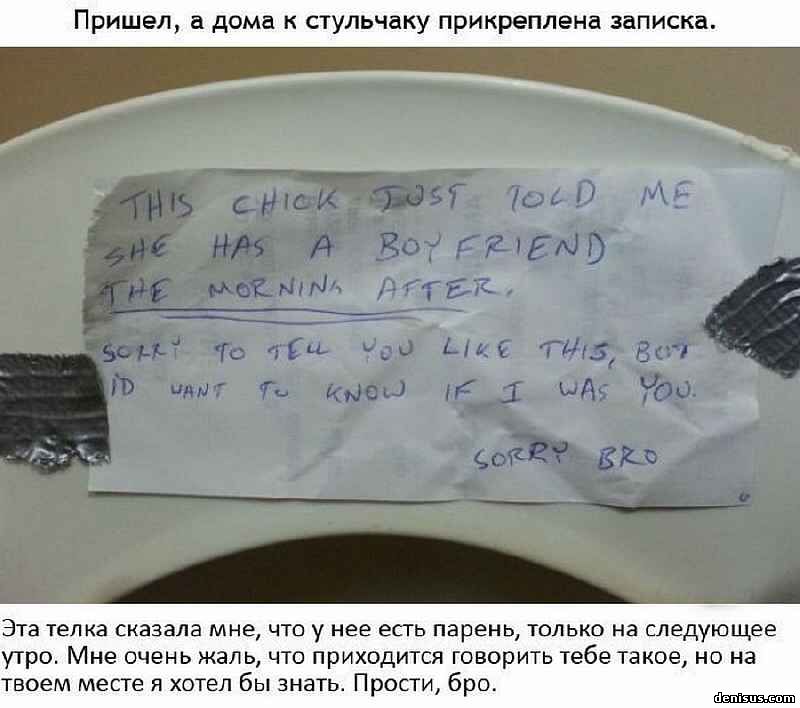 Пришел, а дома к стульчаку прикреплена записка.
THIS CHICK JUST TOLD ME
SHE HAS A BOYFRIEND
THE MORNING AFTER.
SORRY TO TELL YOU LIKE THIS, BUT
I'D WANT TO KNOW IF I WAS YOU.
SORRY BRO
Эта телка сказала мне, что у нее есть парень, только на следующее
утро. Мне очень жаль, что приходится говорить тебе такое, но на
твоем месте я хотел бы знать. Прости, бро.
denisus.com